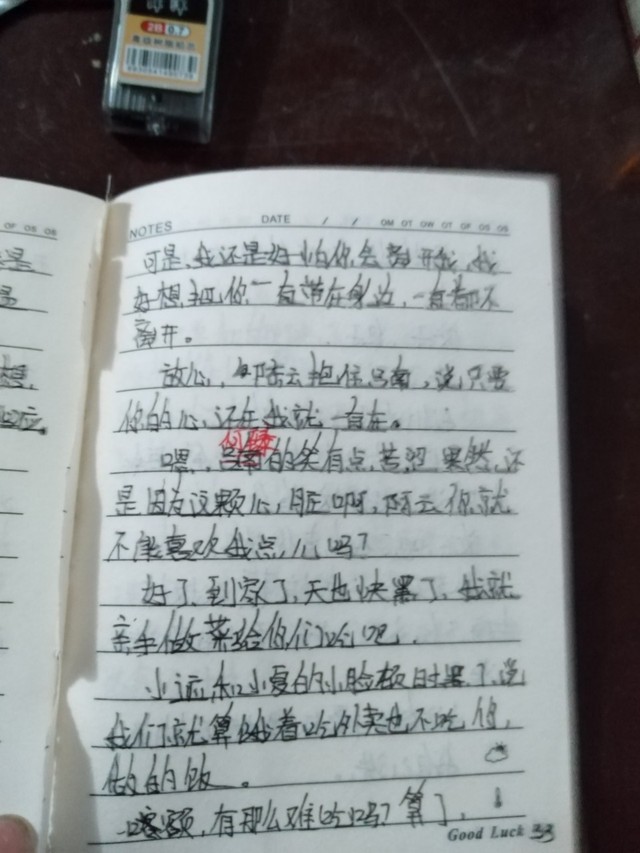 2B 0.7
NOTES DATE / /
可是,我还是好怕你会离开我,我
好想把你一直带在身边,一直都不
离开。
放心,陆云抱住吕南,说只要
你的心,还在我就一直在。
嗯,的笑有点,苦涩果然,还
是因为这颗心,脏啊,陆云你就
不能喜欢我点,儿吗?
好了,到家了,天也快黑了,我就
亲手做菜给你们吃吧,
小远和小夏的小脸极时黑了,说
我们就算饿着吃外卖也不吃你,
做的的饭。
额,有那么难吃吗?算了,
Good Luck 33